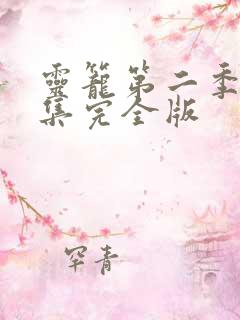 靈籠第二季
集完全版
罕青